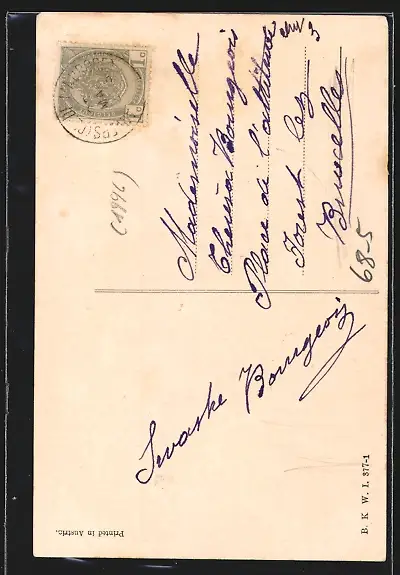 Mademoiselle
Theresa Bourgeois
Place de l'altitude
Forest lez
Bruxelles
68-5
(1996)
Bourgeois
Printed in Austria.
B. K. W. I. 377-1